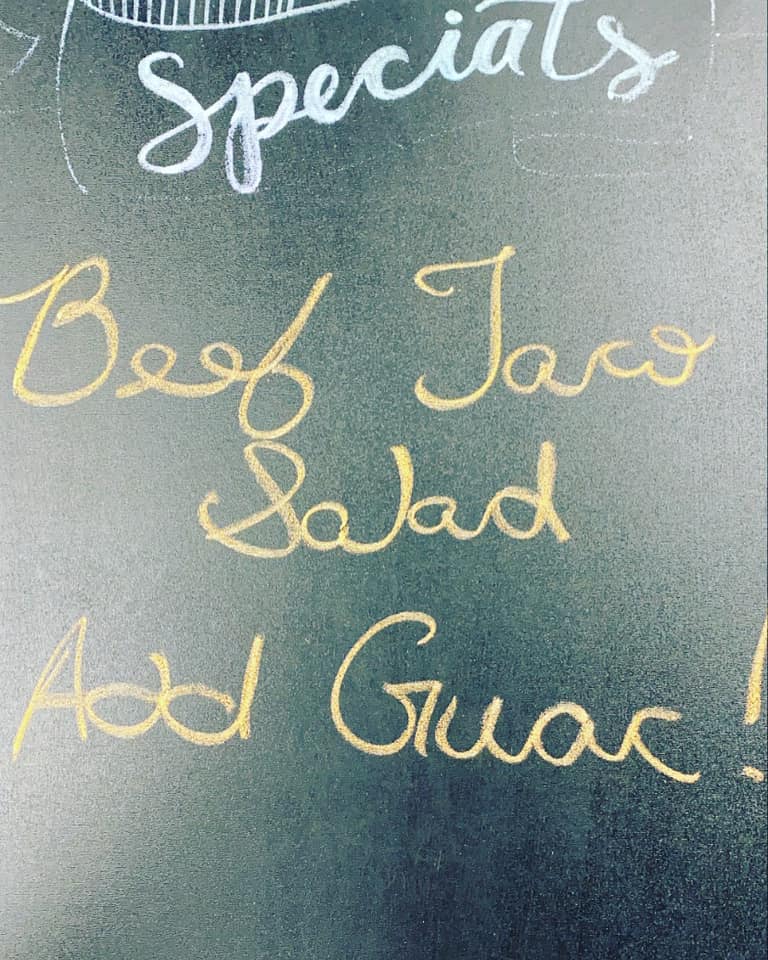 Specials
Beef Taco
Salad
Add Guac!